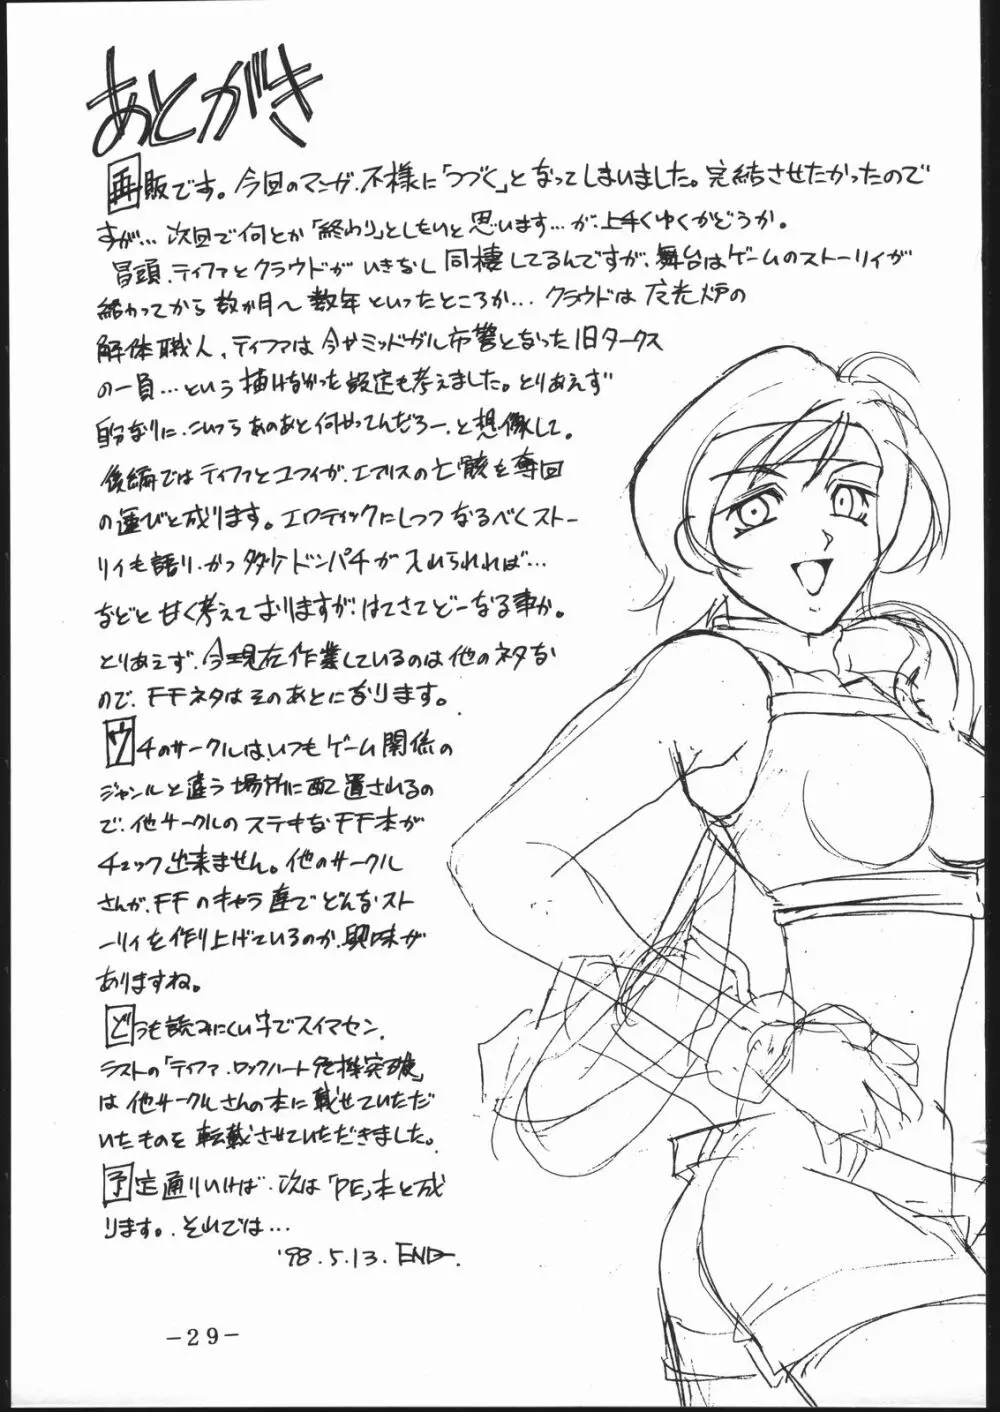 あとがき
再販です。今回のマンガ、不様に「つづく」となってしまいました。完結させたかったので
すが…次回で何とか「終わり」としたいと思います…が、上手くゆくかどうか。
冒頭、ティファとクラウドがいきなし同棲してるんですが、舞台はゲームのストーリィが
終わってから数か月〜数年といったところか…クラウドは魔光炉の
解体職人、ティファは今やミッドガル市警となった旧タークス
の一員…という描けなかった設定も考えました。とりあえず
自分なりに、こいつらあのあと何やってんだろー、と想像して。
後編ではティファとユフィが、エアリスの亡骸を奪回
の運びと成ります。エロティックにしつつなるべくストー
リィも語り、かつダダッドンパチが入れられれば…
などと甘く考えておりますが、はてさてどーなる事か。
とりあえず、今現在作業しているのは他のネタな
ので、FFネタはそのあとになります。
ウチのサークルは、いつもゲーム関係の
ジャンルと違う場所に配置されるの
で、他サークルのステキなFF本が
チェック出来ません。他のサークル
さんが、FFのキャラ達でどんなスト
ーリィを作り上げているのか、興味が
ありますね。
どうも読みにくい字でスイマセン。
ラストの「ティファ・ロックハート危機突破」
は他サークルさんの本に載せていただ
いたものを転載させていただきました。
予定通りいけば、次は「PE」本と成
ります。それでは…
'98.5.13. END.
-29-